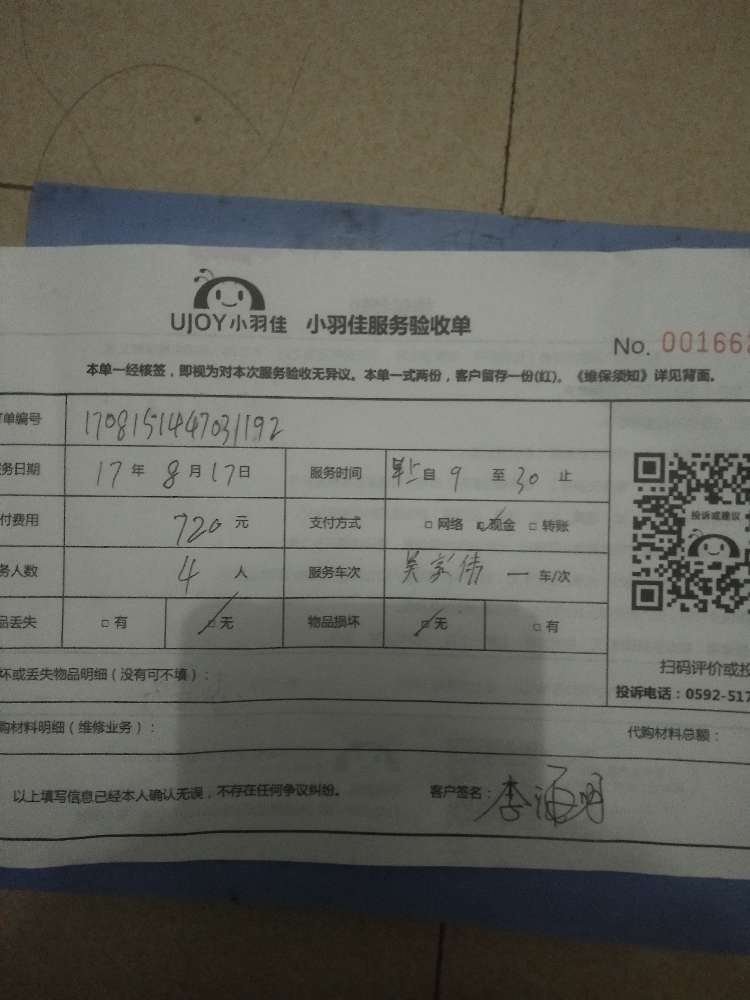 UJOY小羽佳 小羽佳服务验收单
No. 001662
本单一经核签，即视为对本次服务验收无异议。本单一式两份，客户留存一份(红)。《维保须知》详见背面。
单编号 1708151447031192
务日期 17 年 8 月 17 日 服务时间 早上 自 9 至 30 止
付费用 720 元 支付方式 □ 网络 ☑ 现金 □ 转账
务人数 4 人 服务车次 吴家伟 一 车/次
品丢失 □ 有 ☑ 无 物品损坏 ☑ 无 □ 有
投诉或建议
扫码评价或投
投诉电话：0592-517
坏或丢失物品明细（没有可不填）：
购材料明细（维修业务）： 代购材料总额：
以上填写信息已经本人确认无误，不存在任何争议纠纷。 客户签名：李海明